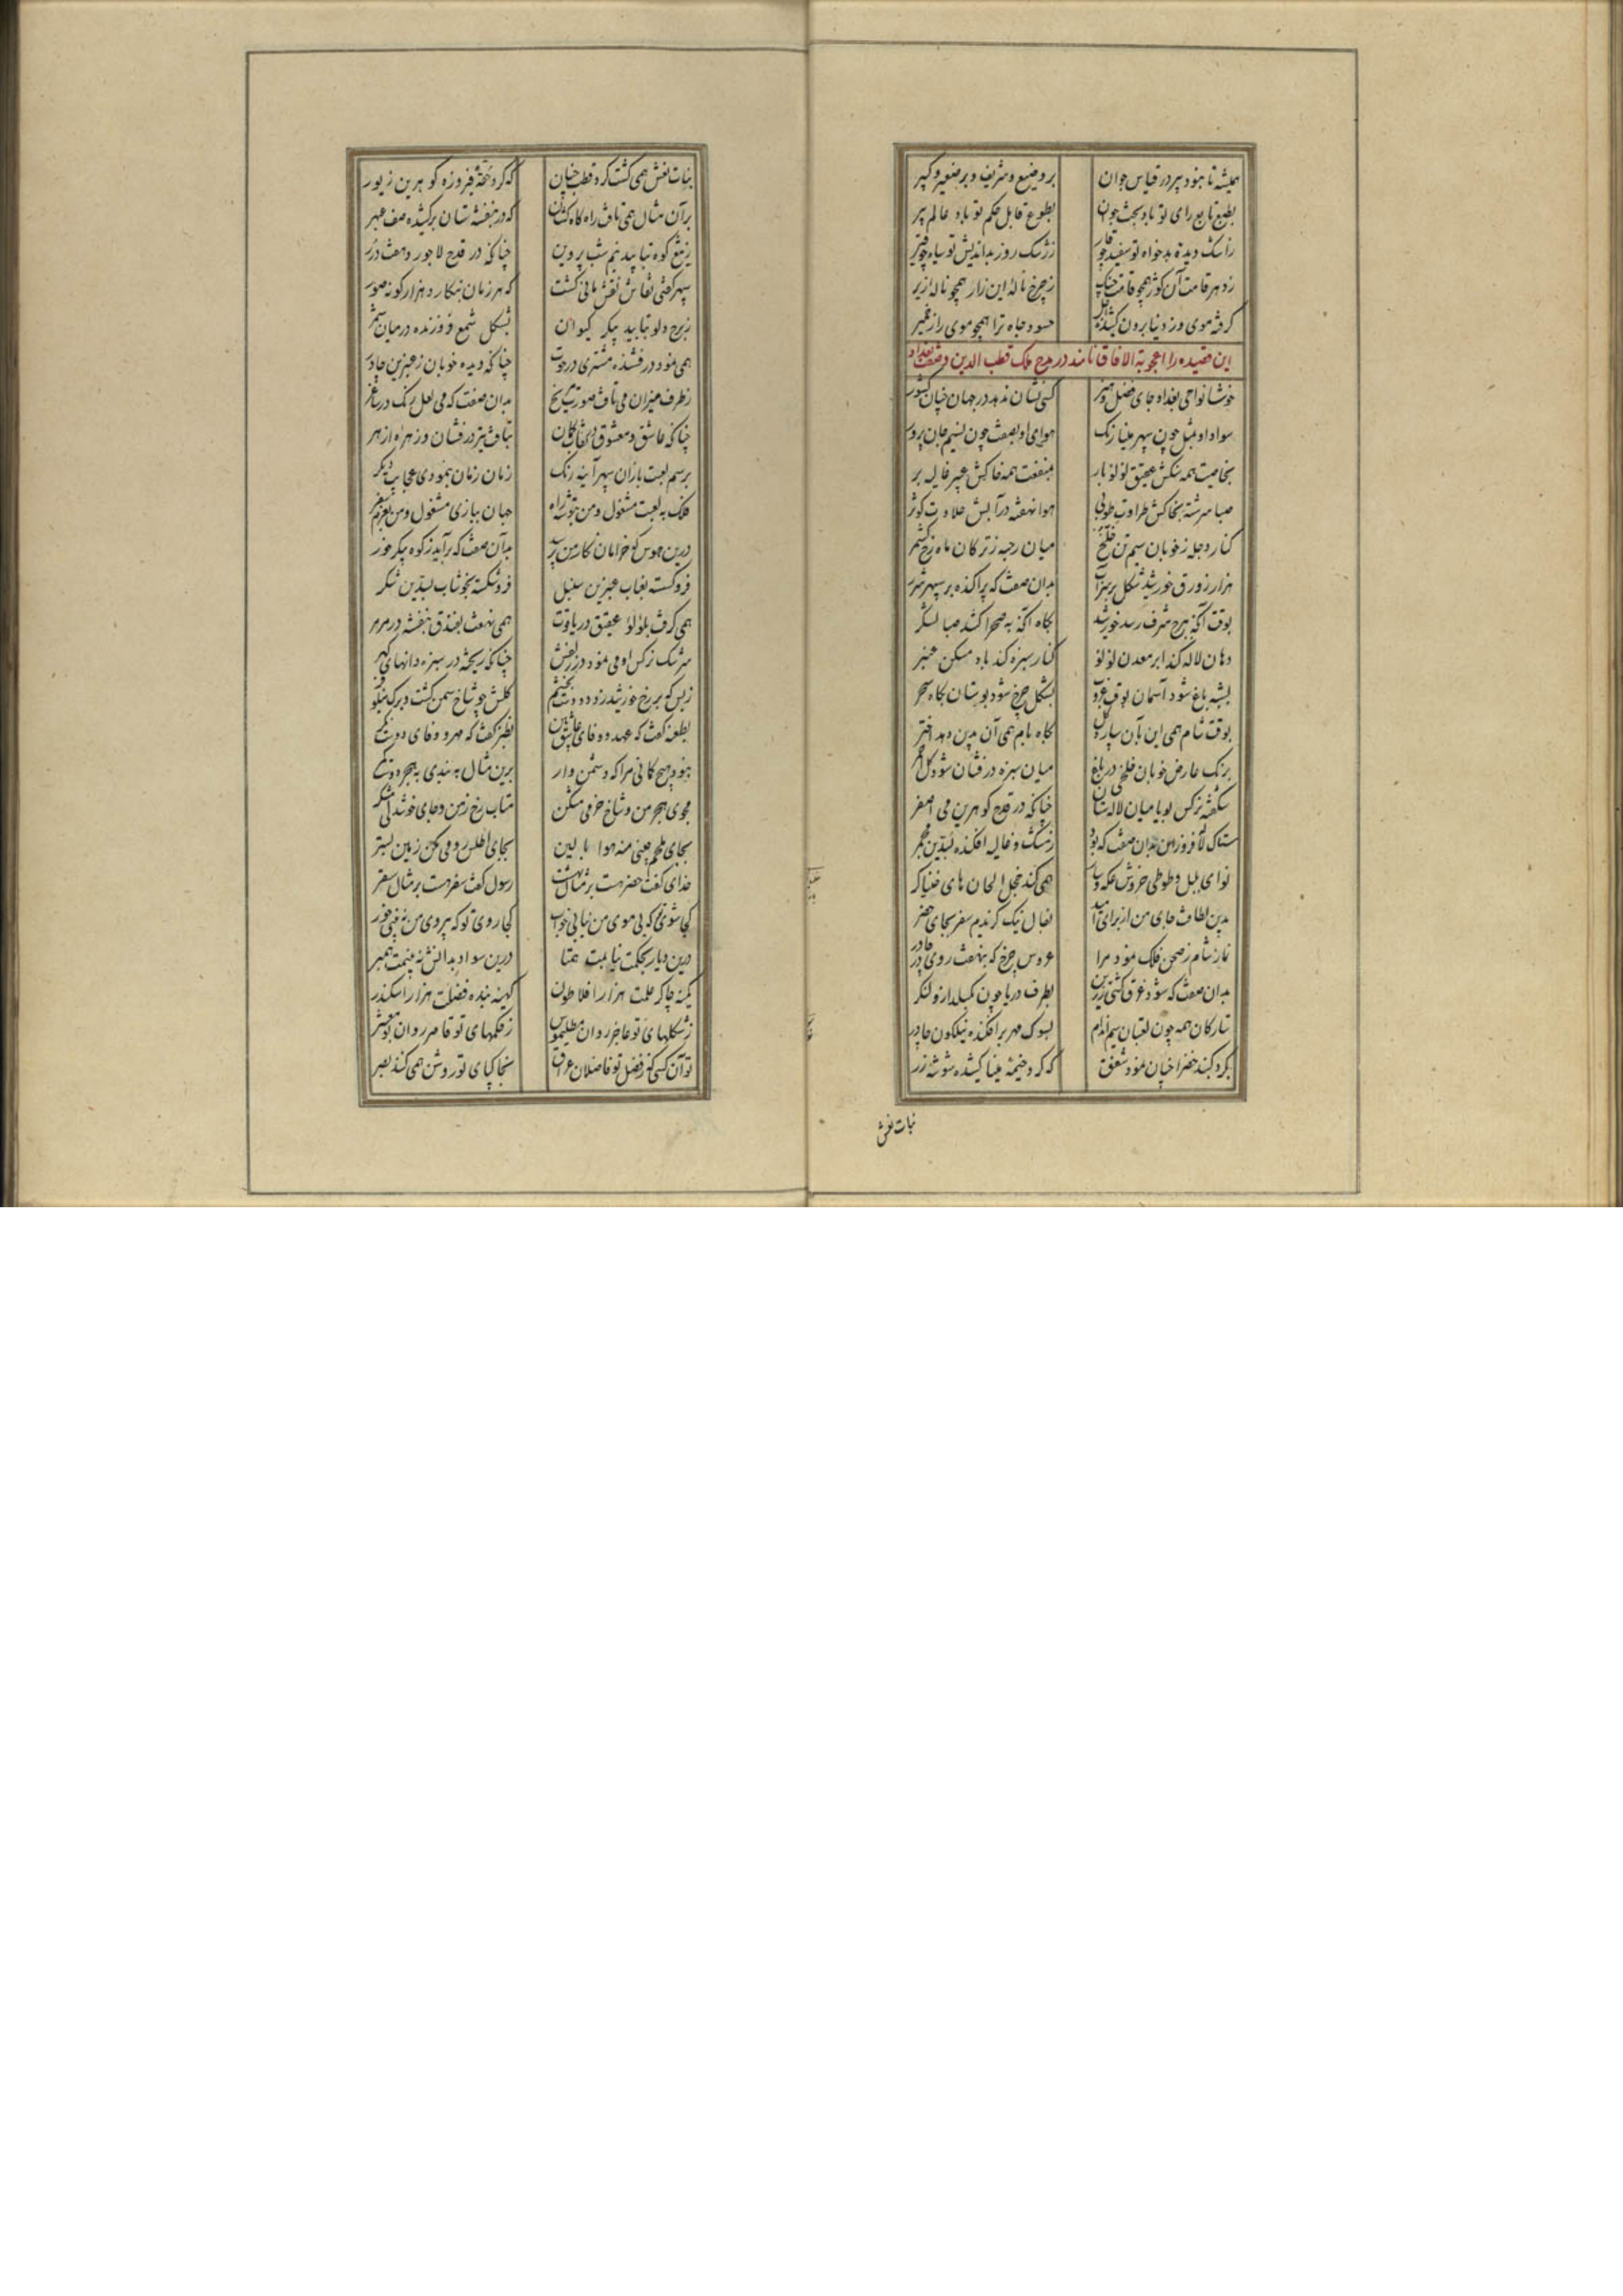 همیشه تا نبود پیر در قیاس جوان بر وضیع و شریف و بر صغیر و کبیر
بطبع تابع رای تو باد بخت جوان بطوع قابل حکم تو باد عالم پیر
ز اشک دیده بدخواه تو سفید چو قار ز رشک روز بداندیش تو سیاه چو قیر
ز دهر قامت آن کوژ همچو قامت چنگ ز چرخ نالهٔ این زار همچو نالهٔ زیر
گرفته موی و ز دنیا برون کشیده حسود جاه ترا همچو موی از خمیر
این قصیده را اعجوبة الافاق نامند در مدح ملک قطب الدین و صفت بغداد
خوشا نواحی بغداد جای فضل و هنر کسی نشان ندهد در جهان چنان کشور
سواد او بمثل چون سپهر مینا رنگ هوای او بصفت چون نسیم جان پرور
بخاصیت همه سنگش عقیق لولو بار بمنفعت همه خاکش عبیر غالیه بر
صبا سرشته بخاکش طراوت طوبی هوا نهفته در آبش حلاوت کوثر
کنار دجله ز خوبان سیم تن خلخ میان رحبه ز ترکان ماه رخ کشمر
هزار زورق خورشید شکل بر سر آب بدان صفت که پراکنده بر سپهر شرر
بوقت آنکه ببرج شرف رسد خورشید بگاه آنکه به صحرا کشد صبا لشکر
دهان لاله کند ابر معدن لولو کنار سبزه کند باد مسکن عنبر
بشبه باغ شود آسمان بوقت غروب بشکل چرخ شود بوستان بگاه سحر
بوقت شام همی این بآن سپارد گل بگاه بام همی آن بدین دهد اختر
برنگ عارض خوبان خلخی در باغ میان سبزه درفشان شود گل احمر
شکفته نرگس بویا میان لاله ستان چنانکه در قدح گوهرین می اصفر
ستاک لاله فروزان بدان صفت که بود ز مشک و غالیه افکنده بسدین مجمر
نوای بلبل و طوطی خروش عکه و سار همی کند خجل الحان های خنیاگر
بدین لطافت جای من از برای امید بفال نیک گزیدم سفر بجای حضر
نماز شام ز صحن فلک نمود مرا عروس چرخ که بنهفت روی در چادر
بدان صفت که شود غرق کشتی زرین بطرف دریا چون بگسلد ازو لنگر
ستارگان همه چون لعبتان سیم اندام بسوک مهر برافکنده نیلگون چادر
بگرد گنبد خضرا چنان نمود شفق که گرد خیمه مینا کشیده شوشه زر
بنات نعش
بنات نعش همی گشت گرد قطب چنان که گرد حقه فیروزه گوهرین زیور
بر آن مثال همی تافت راه کاهکشان که در بنفشه ستان برکشیده صف عبهر
ز تیغ کوه بتابید نیم شب پروین چنانکه در قدح لاجورد هفت درر
سپهر گفتی نقاش نقش مانی گشت که هر زمان بنگارد هزار گونه صور
ز برج دلو بتابید پیکر کیوان بشکل شمع فروزنده در میان شمر
همی نمود درفشنده مشتری در حوت چنانکه دیده خوبان ز عنبرین چادر
ز طرف میزان می تافت صورت مریخ بدان صفت که می لعل رنگ در ساغر
چنانکه عاشق و معشوق در نقاب گمان بتافت تیر درفشان و زهره ازهر
برسم لعبت بازان سپهر آینه رنگ زمان زمان بنمودی عجایب دیگر
فلک به لعبت مشغول و من بتوشه راه جهان ببازی مشغول و من بعزم سفر
درین هوس که خرامان نگار من برسید بدان صفت که برآید ز کوه پیکر خور
فرو گسسته بعناب عنبرین سنبل فرو شکسته بخوشاب بسدین شکر
همی گرفت بلولو عقیق در یاقوت همی نهفت بفندق بنفشه در مرمر
سرشک نرگس او می نمود در زلفش چنانکه ریخته در سبزه دانهای گهر
ز بس که بر رخ خورشید زد دو دست بخشم گلش چو شاخ سمن گشت و برگ نیلوفر
بطعنه گفت که عهد و وفای عاشق بین بطنز گفت که مهر و وفای دوست نگر
نبود هیچ گمانی مرا که دشمن وار برین مثال ببندی به هجر دوست کمر
مجوی هجر من و شاخ خرمی مشکن متاب رخ ز من و جای خوشدلی مشکر
بجای ملحم چینی منه هوا بالین بجای اطلس رومی مکن زمین بستر
خدای گفت حضر هست بر مثال بهشت رسول گفت سفر هست بر مثال سقر
کجا شوی تو که بی موی من نیابی خواب کجا روی تو که بی روی من نبینی خور
درین دیار بحکمت نیابمت همتا درین سواد بدانش نبینمت همبر
کمینه چاکر علمت هزار افلاطون کهینه بنده فضلت هزار اسکندر
ز شکلهای تو عاجز روان بطلیموس ز حکمهای تو قاصر روان بومعشر
تو آن کسی که ز فضل تو فاضلان عراق بخاک پای تو روشن همی کنند بصر